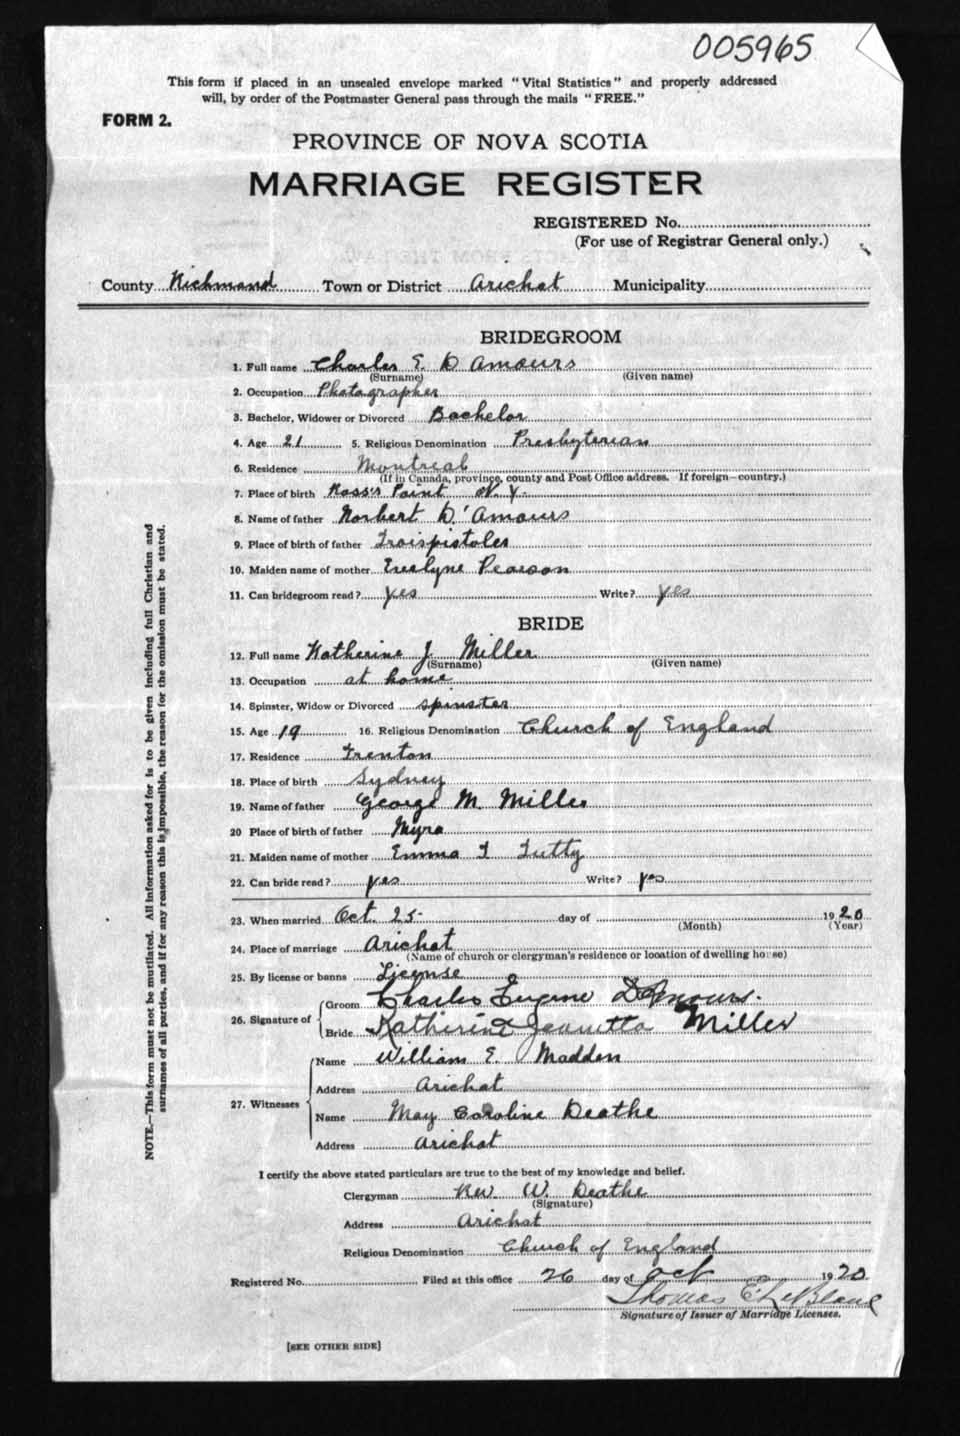 005965
This form if placed in an unsealed envelope marked "Vital Statistics" and properly addressed
will, by order of the Postmaster General pass through the mails "FREE."
FORM 2.
PROVINCE OF NOVA SCOTIA
MARRIAGE REGISTER
REGISTERED No.
(For use of Registrar General only.)
County Richmond Town or District Arichat Municipality
BRIDEGROOM
1. Full name Charles E. D Amours
(Surname) (Given name)
2. Occupation Photographer
3. Bachelor, Widower or Divorced Bachelor
4. Age 21 5. Religious Denomination Presbyterian
6. Residence Montreal
(If in Canada, province, county and Post Office address. If foreign—country.)
7. Place of birth Ross's Point N. Y.
8. Name of father Norbert D'Amours
9. Place of birth of father Troispistoles
10. Maiden name of mother Evelyne Pearson
11. Can bridegroom read? yes Write? yes
BRIDE
12. Full name Katherine J. Miller
(Surname) (Given name)
13. Occupation at home
14. Spinster, Widow or Divorced spinster
15. Age 19 16. Religious Denomination Church of England
17. Residence Trenton
18. Place of birth Sydney
19. Name of father George M. Miller
20 Place of birth of father Myra
21. Maiden name of mother Emma T Tutty
22. Can bride read? yes Write? yes
23. When married Oct. 25 day of 1920
(Month) (Year)
24. Place of marriage Arichat
(Name of church or clergyman's residence or location of dwelling house)
25. By license or banns License
26. Signature of Groom Charles Eugene D'Amours.
Bride Katherine Jeanetta Miller
27. Witnesses Name William E. Madden
Address Arichat
Name May Caroline Deathe
Address Arichat
I certify the above stated particulars are true to the best of my knowledge and belief.
Clergyman Rev. W. Deathe
(Signature)
Address Arichat
Religious Denomination Church of England
Registered No. Filed at this office 26 day of Oct 1920
Thomas E LeBlanc
Signature of Issuer of Marriage Licenses.
[SEE OTHER SIDE]
NOTE.—This form must not be mutilated. All information asked for is to be given including full Christian and
surnames of all parties, and if for any reason this is impossible, the reason for the omission must be stated.